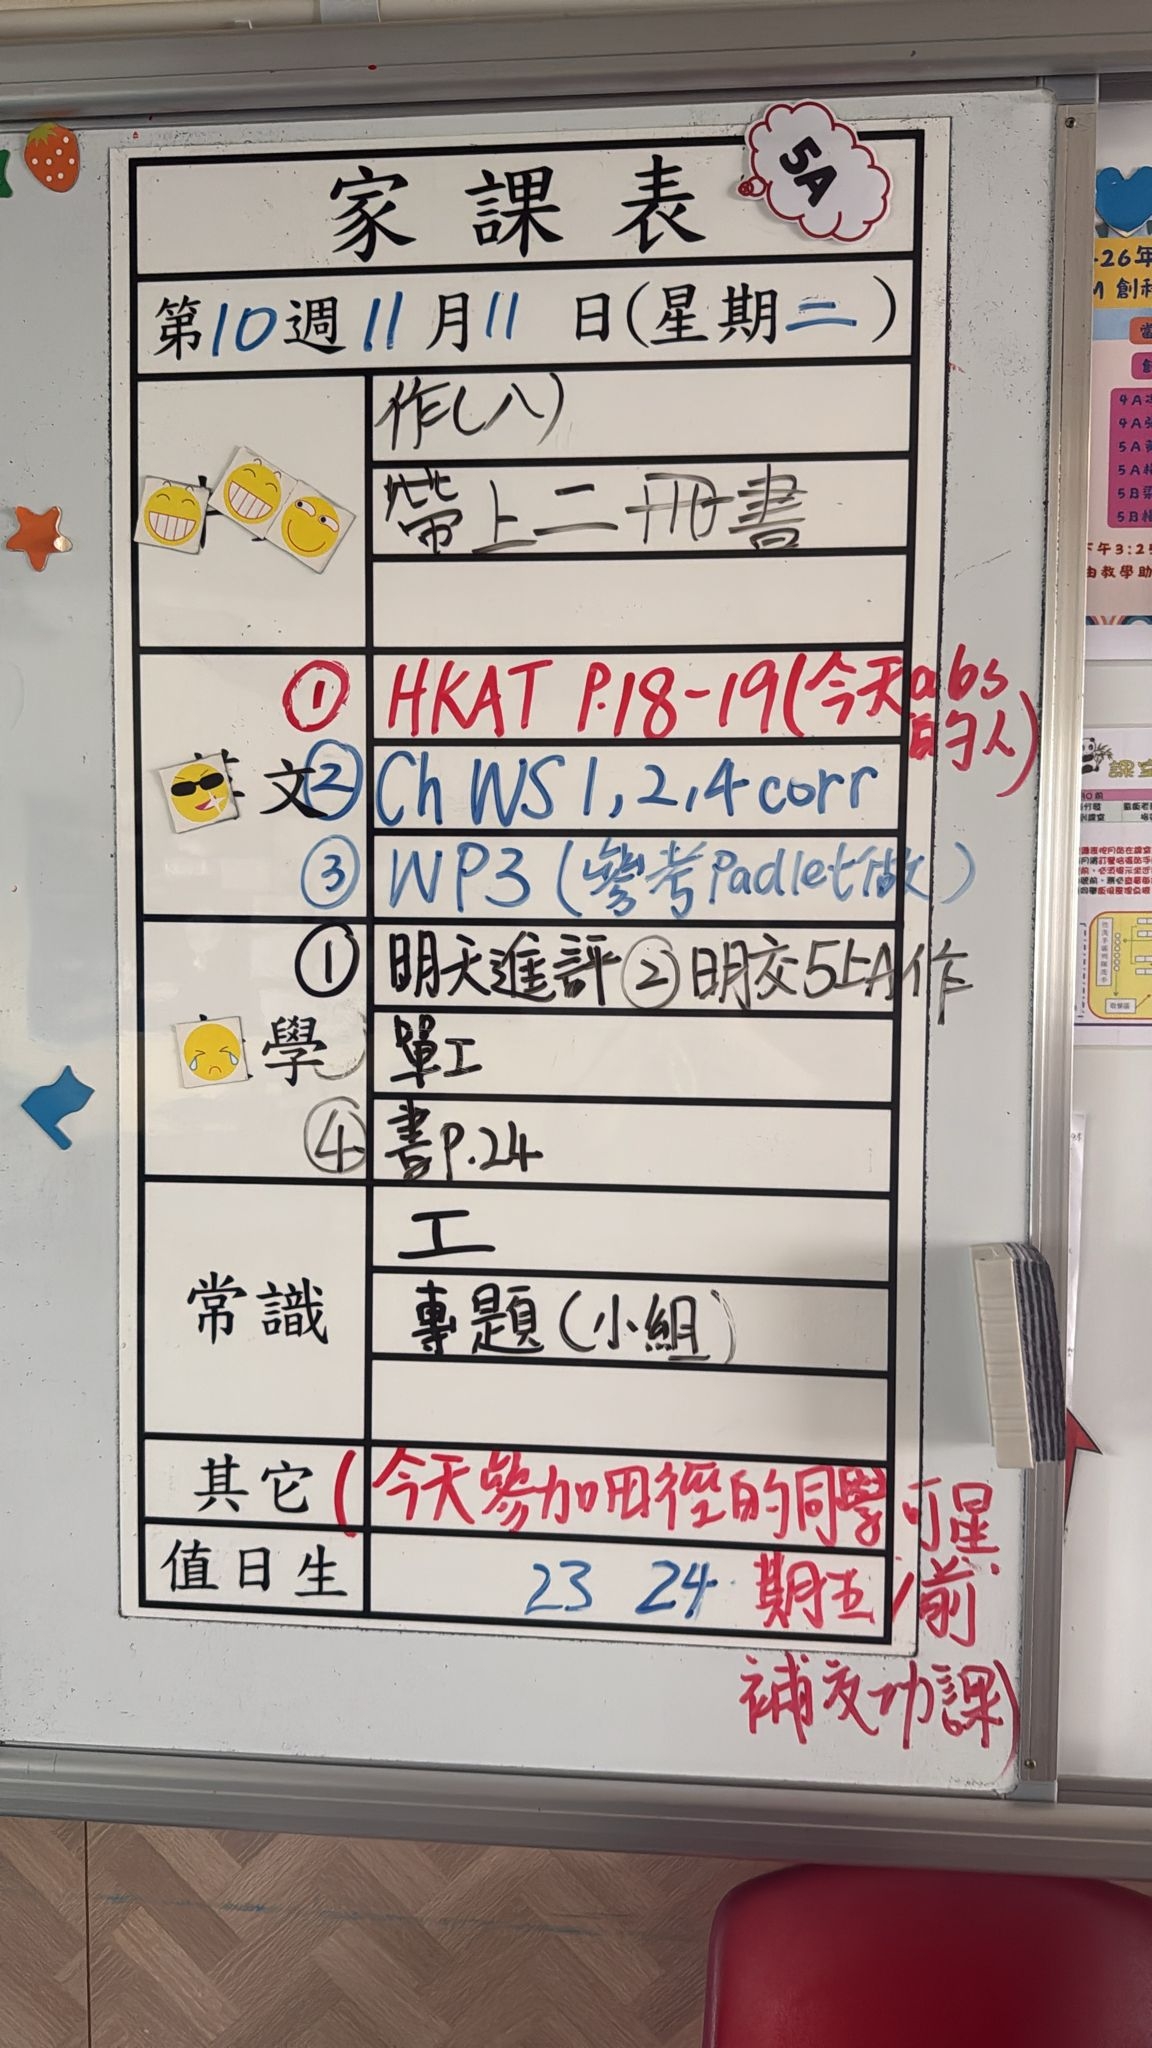 5A
家課表
第10週11月11日(星期二)
作(八)
帶上二冊書
① HKAT P.18-19(今天abs的人)
文② Ch WS 1,2,4 corr
③ WP3 (參考Padlet做)
① 明天進評 ② 明交5上A作
學 單工
④ 書P.24
常識
工
專題(小組)
其它 (今天參加田徑的同學可星
值日生 23 24 期五前
補交功課)
-26年
M 創科
4A
4A
5A
5A
5B
5B
下午3:25
由教學助
課室